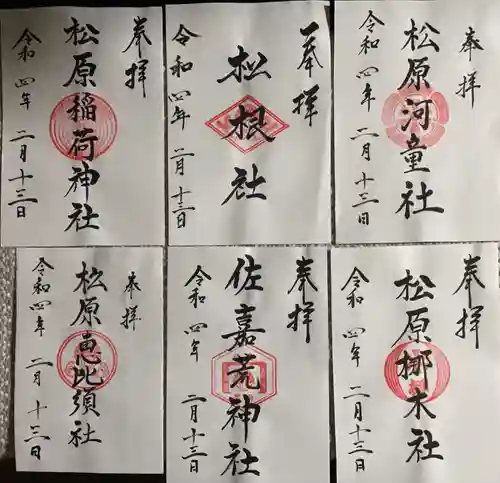 奉拝
松原稲荷神社
令和四年 二月十三日
奉拝
松根社
令和四年 二月十三日
奉拝
松原河童社
令和四年 二月十三日
奉拝
松原恵比須社
令和四年 二月十三日
奉拝
佐嘉荒神社
令和四年 二月十三日
奉拝
松原梛木社
令和四年 二月十三日